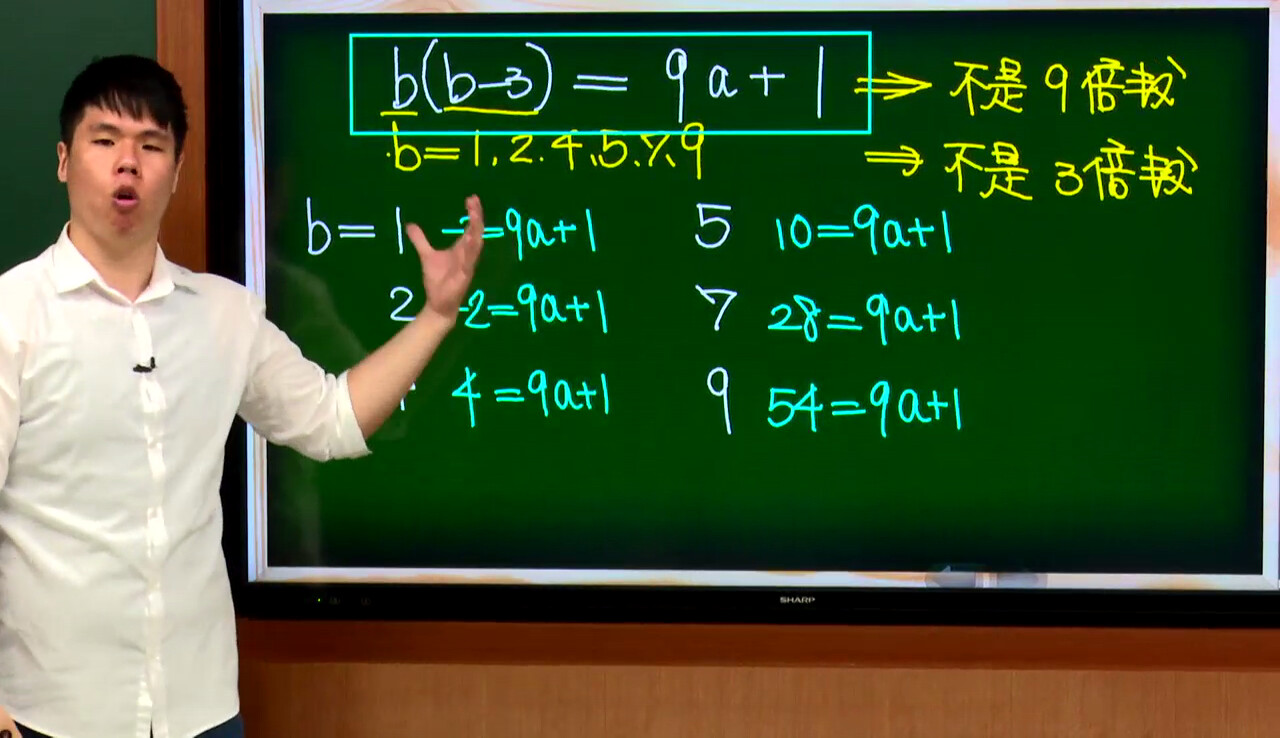 b(b-3) = 9a+1 ⇒ 不是 9 倍數
b=1.2.4.5.7.9 ⇒ 不是 3 倍數
b=1 =9a+1 5 10=9a+1
2 -2=9a+1 7 28=9a+1
4=9a+1 9 54=9a+1
SHARP